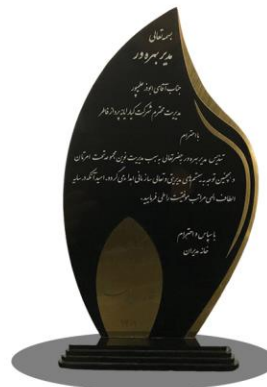 بسمه تعالی
مدیر بهره ور
جناب آقای ابوذر علیپور
مدیریت محترم شرکت کیا ایاز پرداز فاطر
با احترام
تندیس مدیر بهره ور به حضرتعالی به سبب مدیریت نوین مجموعه تحت امرتان
و همچنین توجه به سیستم های مدیریتی و تعالی سازمانی اهدا می گردد. امید آنکه در سایه
الطاف الهی مراتب موفقیت را طی فرمایید.
با سپاس و احترام
خانه مدیران